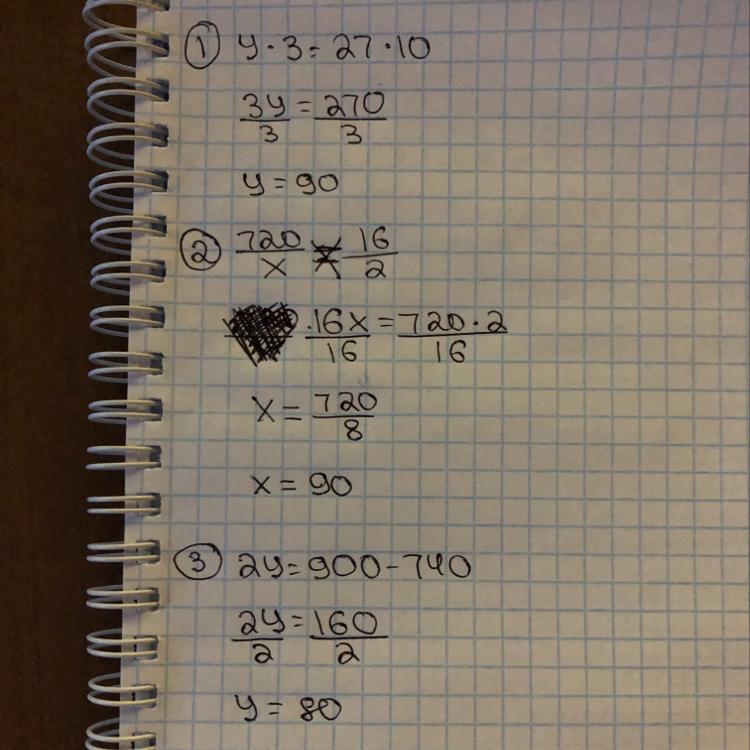 ① y·3=27·10
3y/3=270/3
y=90
② 720/x = 16/2
·16x/16=720·2/16
x=720/8
x=90
③ 2y=900-740
2y/2=160/2
y=80